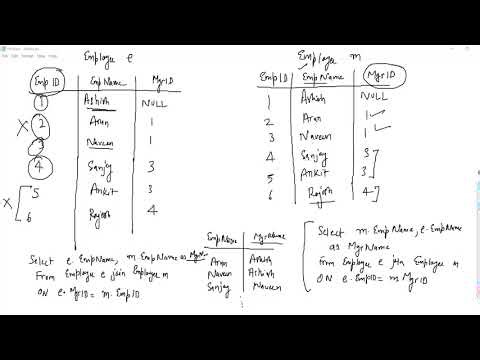 Employee e
Emp ID EmpName MgrID
1 Ashish NULL
X 2 Arun 1
3 Naveen 1
4 Sanjay 3
X 5 Ankit 3
6 Rajesh 4
Employee m
EmpID EmpName MgrID
1 Ashish NULL
2 Arun 1
3 Naveen 1
4 Sanjay 3
5 Ankit 3
6 Rajesh 4
Select e.EmpName, m.EmpName as
From Employee e join Employee m
ON e.MgrID = m.EmpID
EmpName MgrName
Arun Ashish
Naveen Ashish
Sanjay Naveen
Select m.EmpName, e.EmpName
as MgrName
From Employee e join Employee m
ON e.EmpID = m MgrID